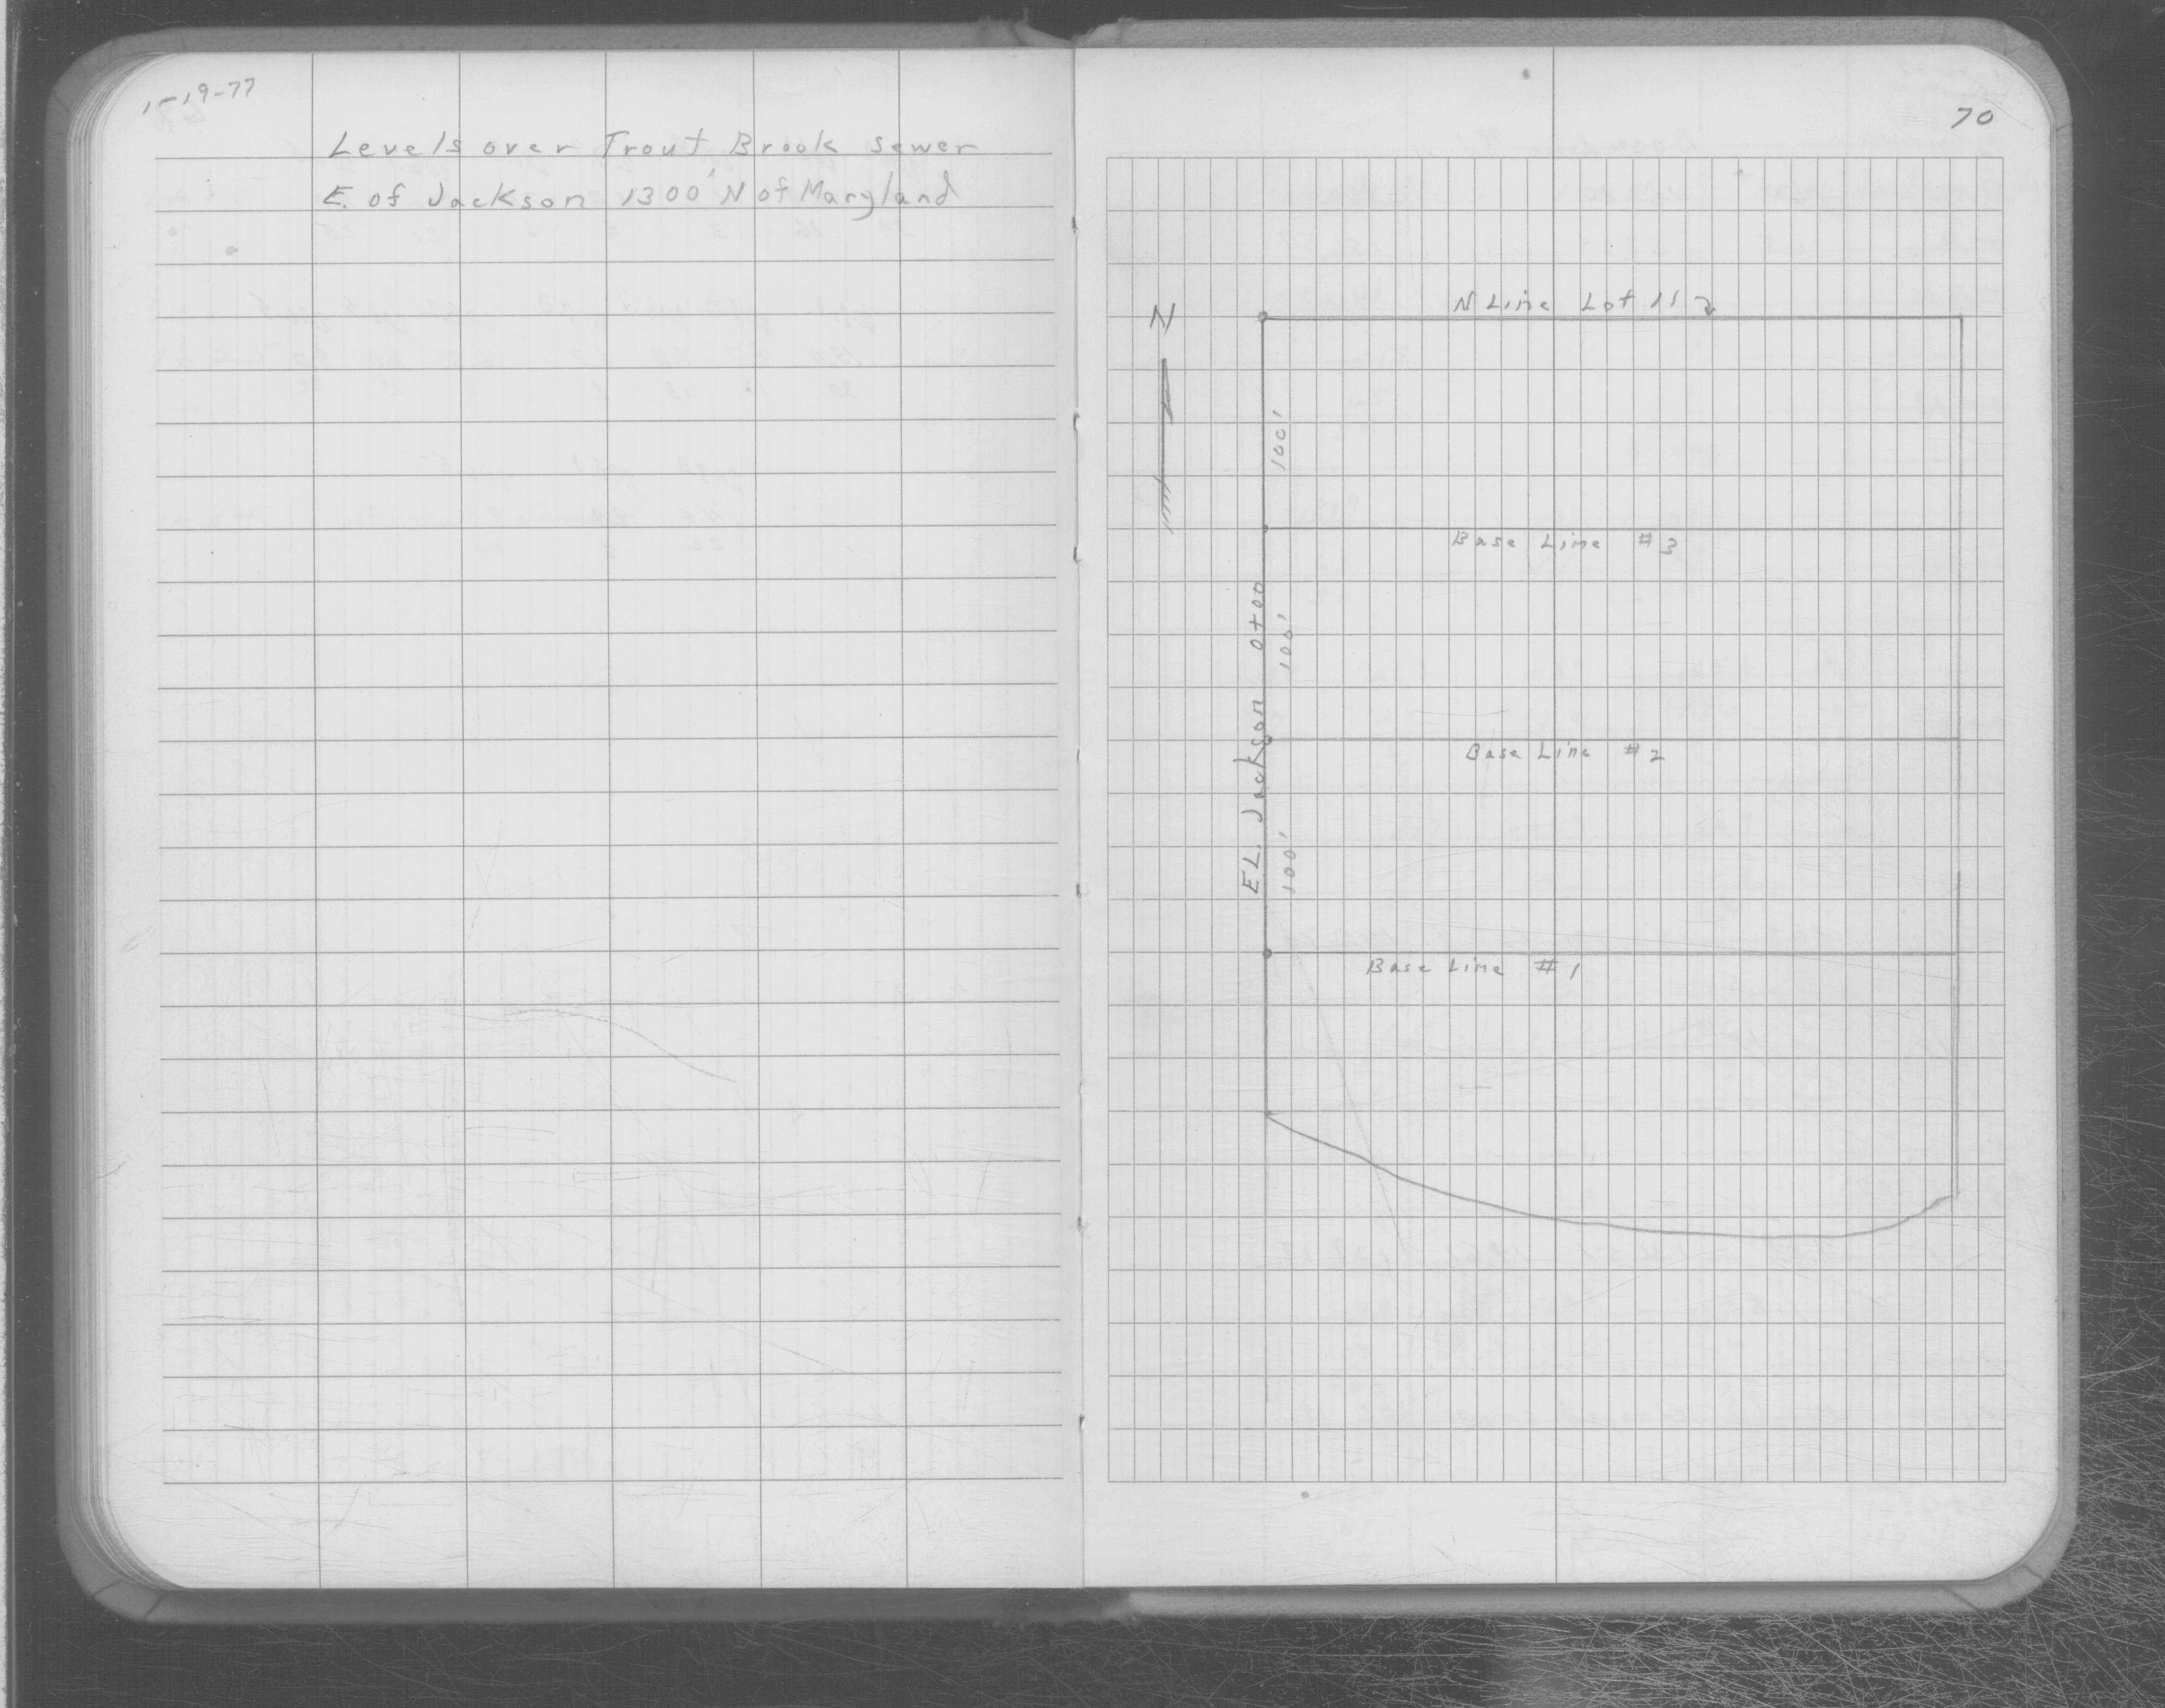 1-19-77
Levels over Trout Brook sewer
E. of Jackson 1300' N of Maryland
70
N
N Line Lot 11
100'
Base Line #3
EL. Jackson 0+00
100'
Base Line #2
100'
Base Line #1